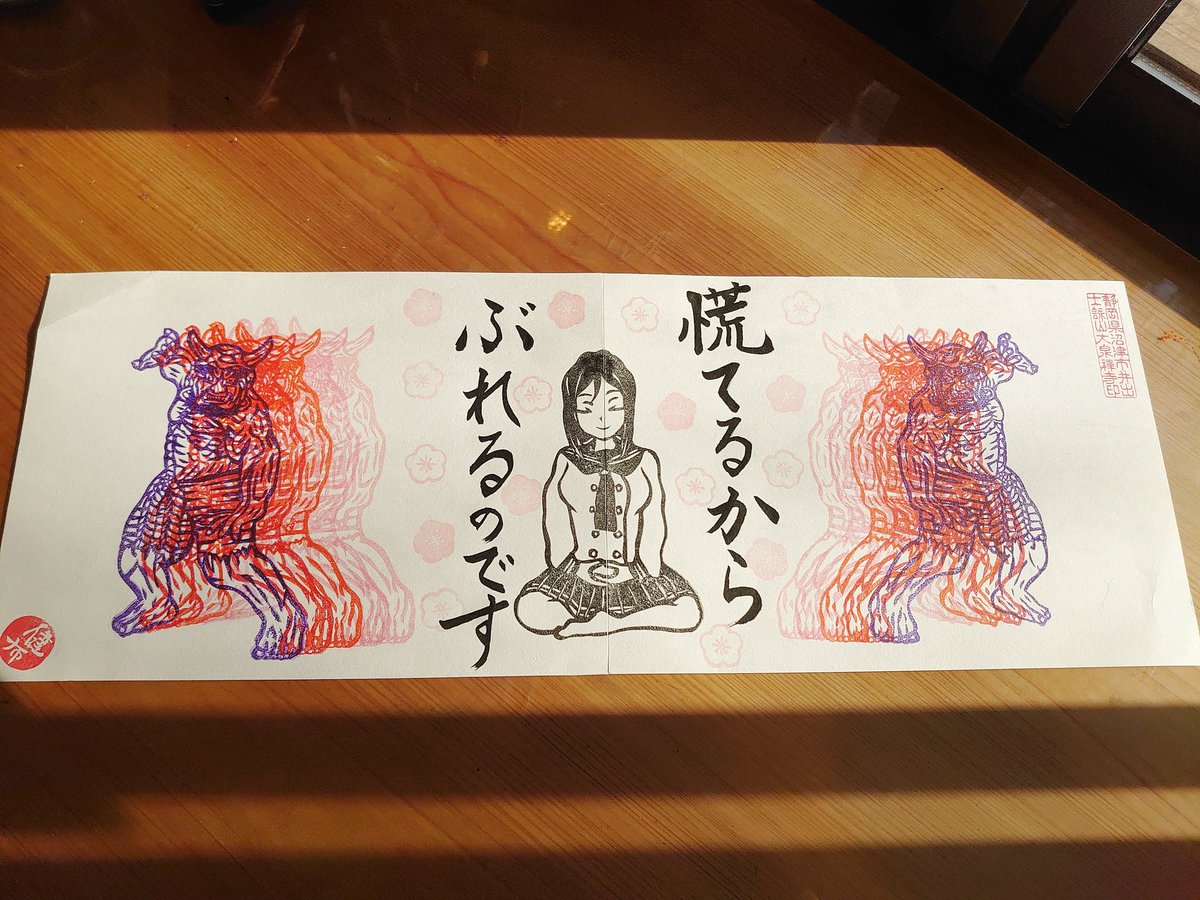 慌てるから
ぶれるのです
静岡県沼津市井出
士詠山大泉禅寺印